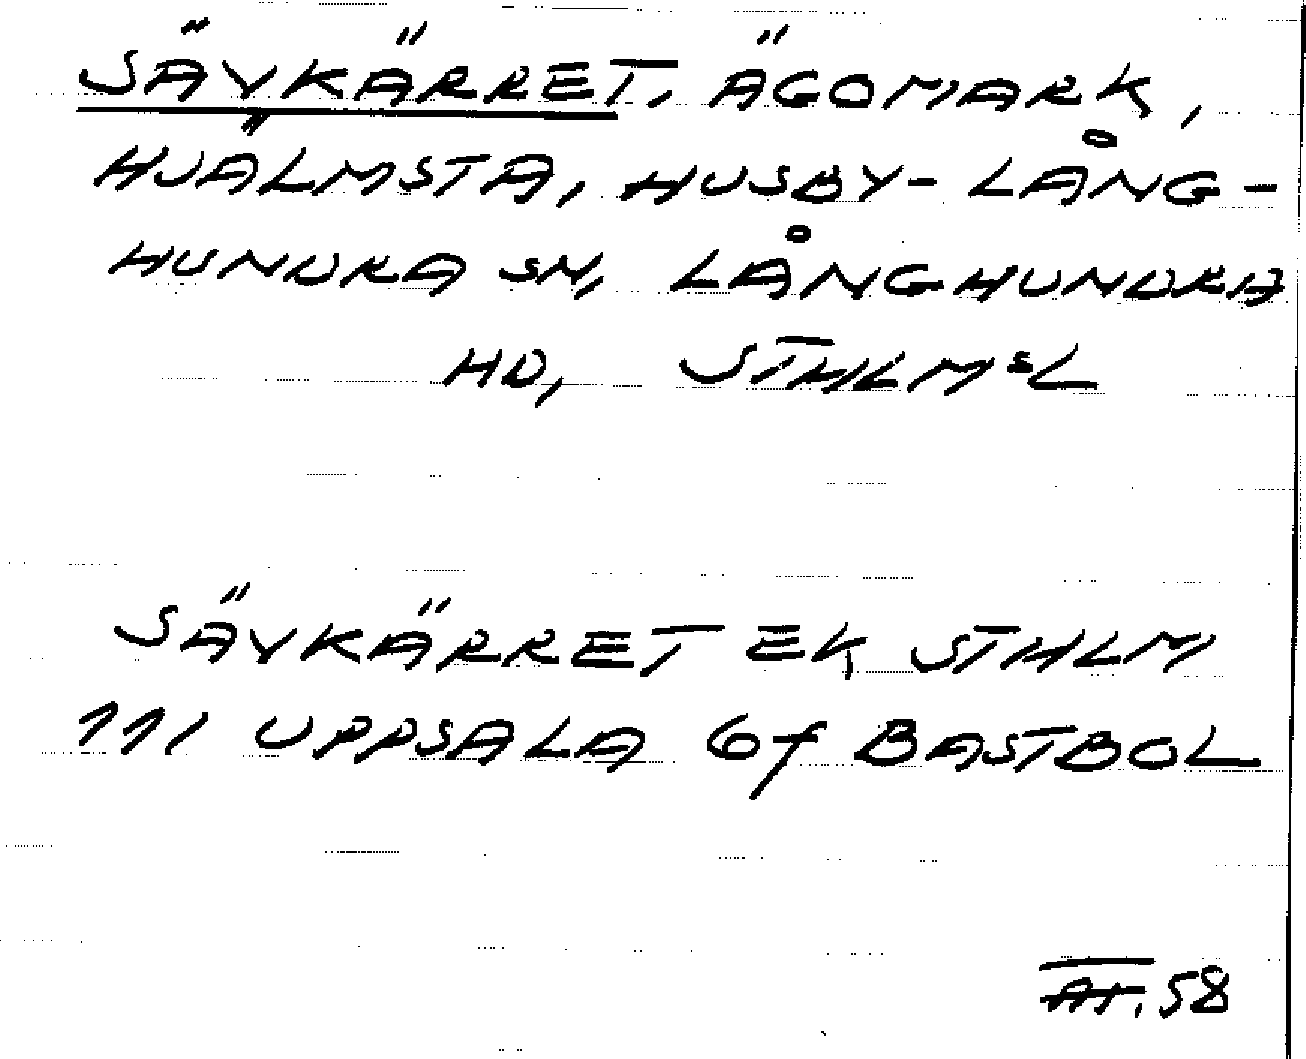 SÄVKÄRRET, ÄGOMARK,
HJÄLMSTA, HUSBY-LÅNG-
HUNDRA SN, LÅNGHUNDRA
HD, STHLMSL
SÄVKÄRRET EK STHLM
111 UPPSALA 6f BASTBOL
58